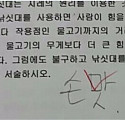 낚싯대는 지레의 원리를 이용한 것
낚싯대를 사용하면 '사람이 힘을
다 작용점인 물고기까지의 거리
물고기의 무게보다 더 큰 힘
다. 그럼에도 불구하고 낚싯대를
서술하시오.
손맛